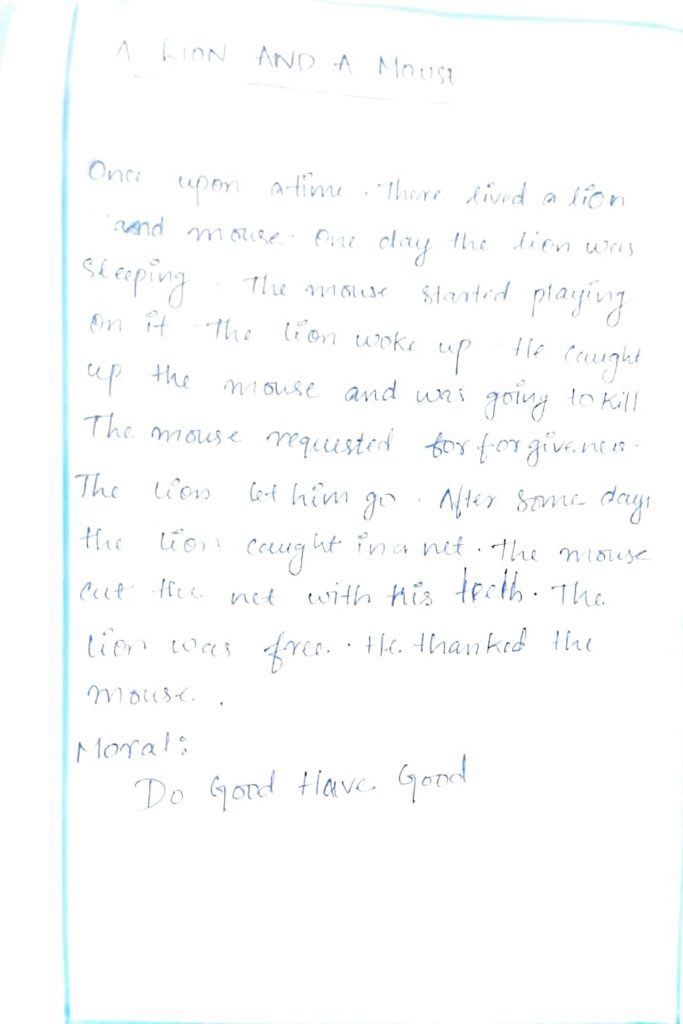 A LION AND A MOUSE
Once upon a time. There lived a lion
and mouse. One day the lion was
sleeping. The mouse started playing
on it. The lion woke up. He caught
up the mouse and was going to kill
The mouse requested for forgiveness.
The lion let him go. After some days
the lion caught in a net. The mouse
cut the net with his teeth. The
lion was free. He thanked the
mouse.
Moral:
Do Good Have Good